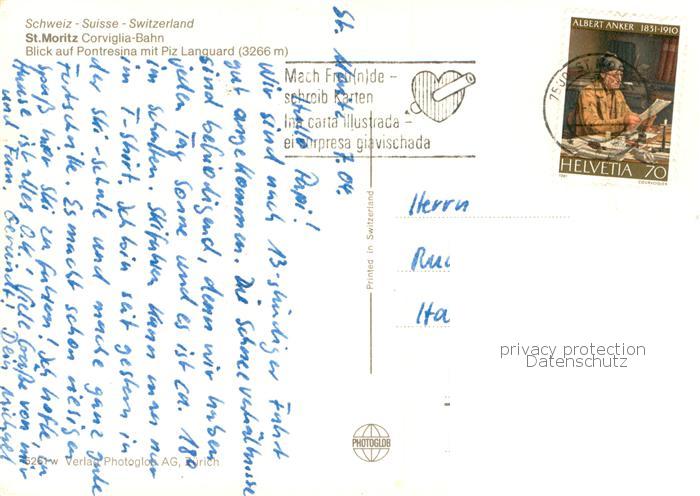 Schweiz - Suisse - Switzerland
St. Moritz Corviglia-Bahn
Blick auf Pontresina mit Piz Languard (3266 m)
Mach Freu(n)de -
schreib Karten
Ina carta illustrada -
ei surpresa giavischada
ALBERT ANKER 1831-1910
HELVETIA 70
1981
COURVOISIER
St. Moritz 7.04.
Hallo Papi!
Wir sind nach 13-stündiger Fahrt
gut angekommen. Die Schneeverhältnisse
sind befriedigend, denn wir haben
jeden Tag Sonne und es ist ca. 18°
im Schatten. Skifahren kann man nur
im T-Shirt. Ich bin seit gestern in
der Ski-Schule und mache ganz gute
Fortschritte. Es macht schon riesigen
Spaß hier Ski zu fahren! Ich hoffe, zu
Hause ist alles O.K.! Viele Grüße von mir
und Fam. Dein Michael
Printed in Switzerland
Herrn
privacy protection
Datenschutz
PHOTOGLOB
Verlag Photoglob AG, Zürich